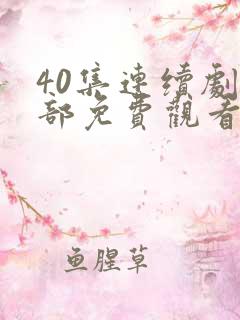 40集连续劇
部免費觀看
鱼腥草